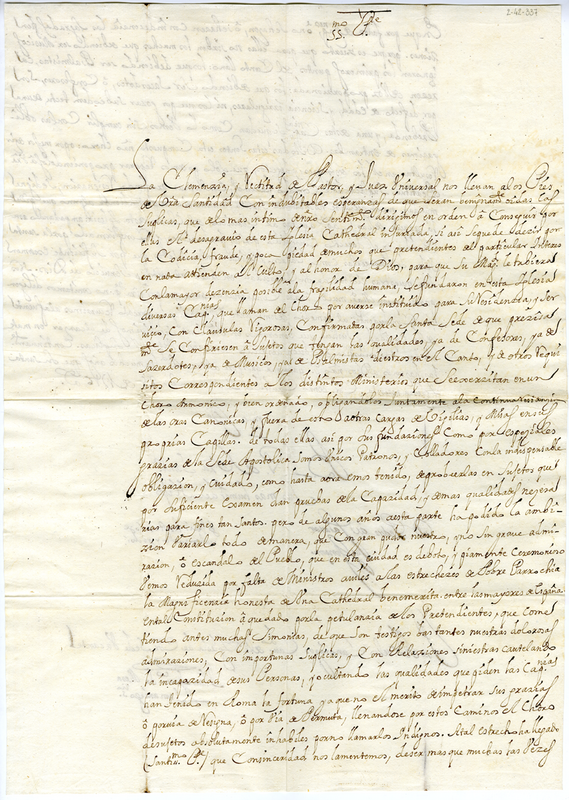 2-42-337
SS.mo P.e
La Clemenzia, y Rectitud de Pastor, y Juez Vniversal nos llevan a los Pies
de Vra Santidad Con indubitables esperanzas de que seran
Suplicas, que de lo mas intimo en orden à Conseguir por
ellas el desagravio de esta Iglesia Cathedral injuriada, si asi se puede dezir por
la Codicia, fraude, y poca piedad de muchos que pretendientes del particular Interes
en nada attienden al Culto, y al honor de Dios, para que Su Mag.d le tubiera
Con la mayor dezenzia posible a la fragilidad humana, se fundaron en esta Iglesia
diversas Cap.nias que llaman del Choro por averse instituido para su Residenzia, y Ser
vicio, Con Clausulas Rigorosas, Confirmadas por la Santa Sede de que prezisa
m.te Se Confiriesen à Sujetos que tengan las qualidades, ya de Confesores, ya de
Sazerdotes, ya de Musicos, ya de Psalmistas diestros en el Canto, y de otros Requi
sitos Correspondientes à los distintos Ministerios que Se exerzitan en un
Choro Armonico, y bien ordenado, obligandolos Juntamente a la continua
de las oras Canonicas, y fuera de esto à otras Cargas de Vigilias, y Misas en sus
proprias Capillas. de todas ellas, asi por sus fundaziones, Como por espeziales
grazias de la Sede Apostolica Somos Unicos Patronos, y Colladores Con la indispensable
obligazion, y Cuidado, como hasta aora emos tenido, de probeerlas en Sujetos que
por Sufiziente examen dan pruebas de la Capazidad, y demas qualidades nezesa
rias para fines tan Santos. pero de algunos años a esta parte ha podido la ambi
zion Variarlo todo de manera, que Con gran nuestro, y no Sin grave admi
razion, ò escandalo del Pueblo, que en esta ciudad es debota, y piamente Ceremonioso
bemos Reduzida por falta de Ministros a las estrechezes de Pobre Parrochia
la Magnificenzia honesta de Vna Cathedral benemerita entre las mayores de España
en tal Constituzion à quedado por la petulanzia de los Pretendientes, que come
tiendo antes muchas Simonias, de que Son testigos bastantes nuestras dolorosas
Con importunas Suplicas, y Con Relaziones Siniestras cautelando
la incapazidad de sus Personas, y ocultando las qualidades que piden las Cap.nias
han tenido en Roma la fortuna, ya que no el merito de impetrar Sus grazias
ò por via de Resigna, ò por Via de Permuta, llenandose por estos Caminos el Choro
de sujetos absolutamente inhabiles por no llamarlos Indignos. A tal estrecho ha llegado
(Santis.mo P.e) que Con sinceridad nos lamentemos, de ser mas que muchas las Vezes